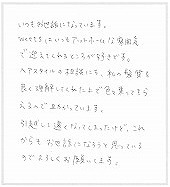 いつもお世話になっています。
いつもアットホームな雰囲気
で迎えてくれるところが好きです。
ヘアスタイルの相談にも、私の髪質を
良く理解してくれた上で色々乗ってもら
えるので
引越しして遠くなってしまったけど、これ
からもお世話になろうと思っている
のでよろしくお願いします。